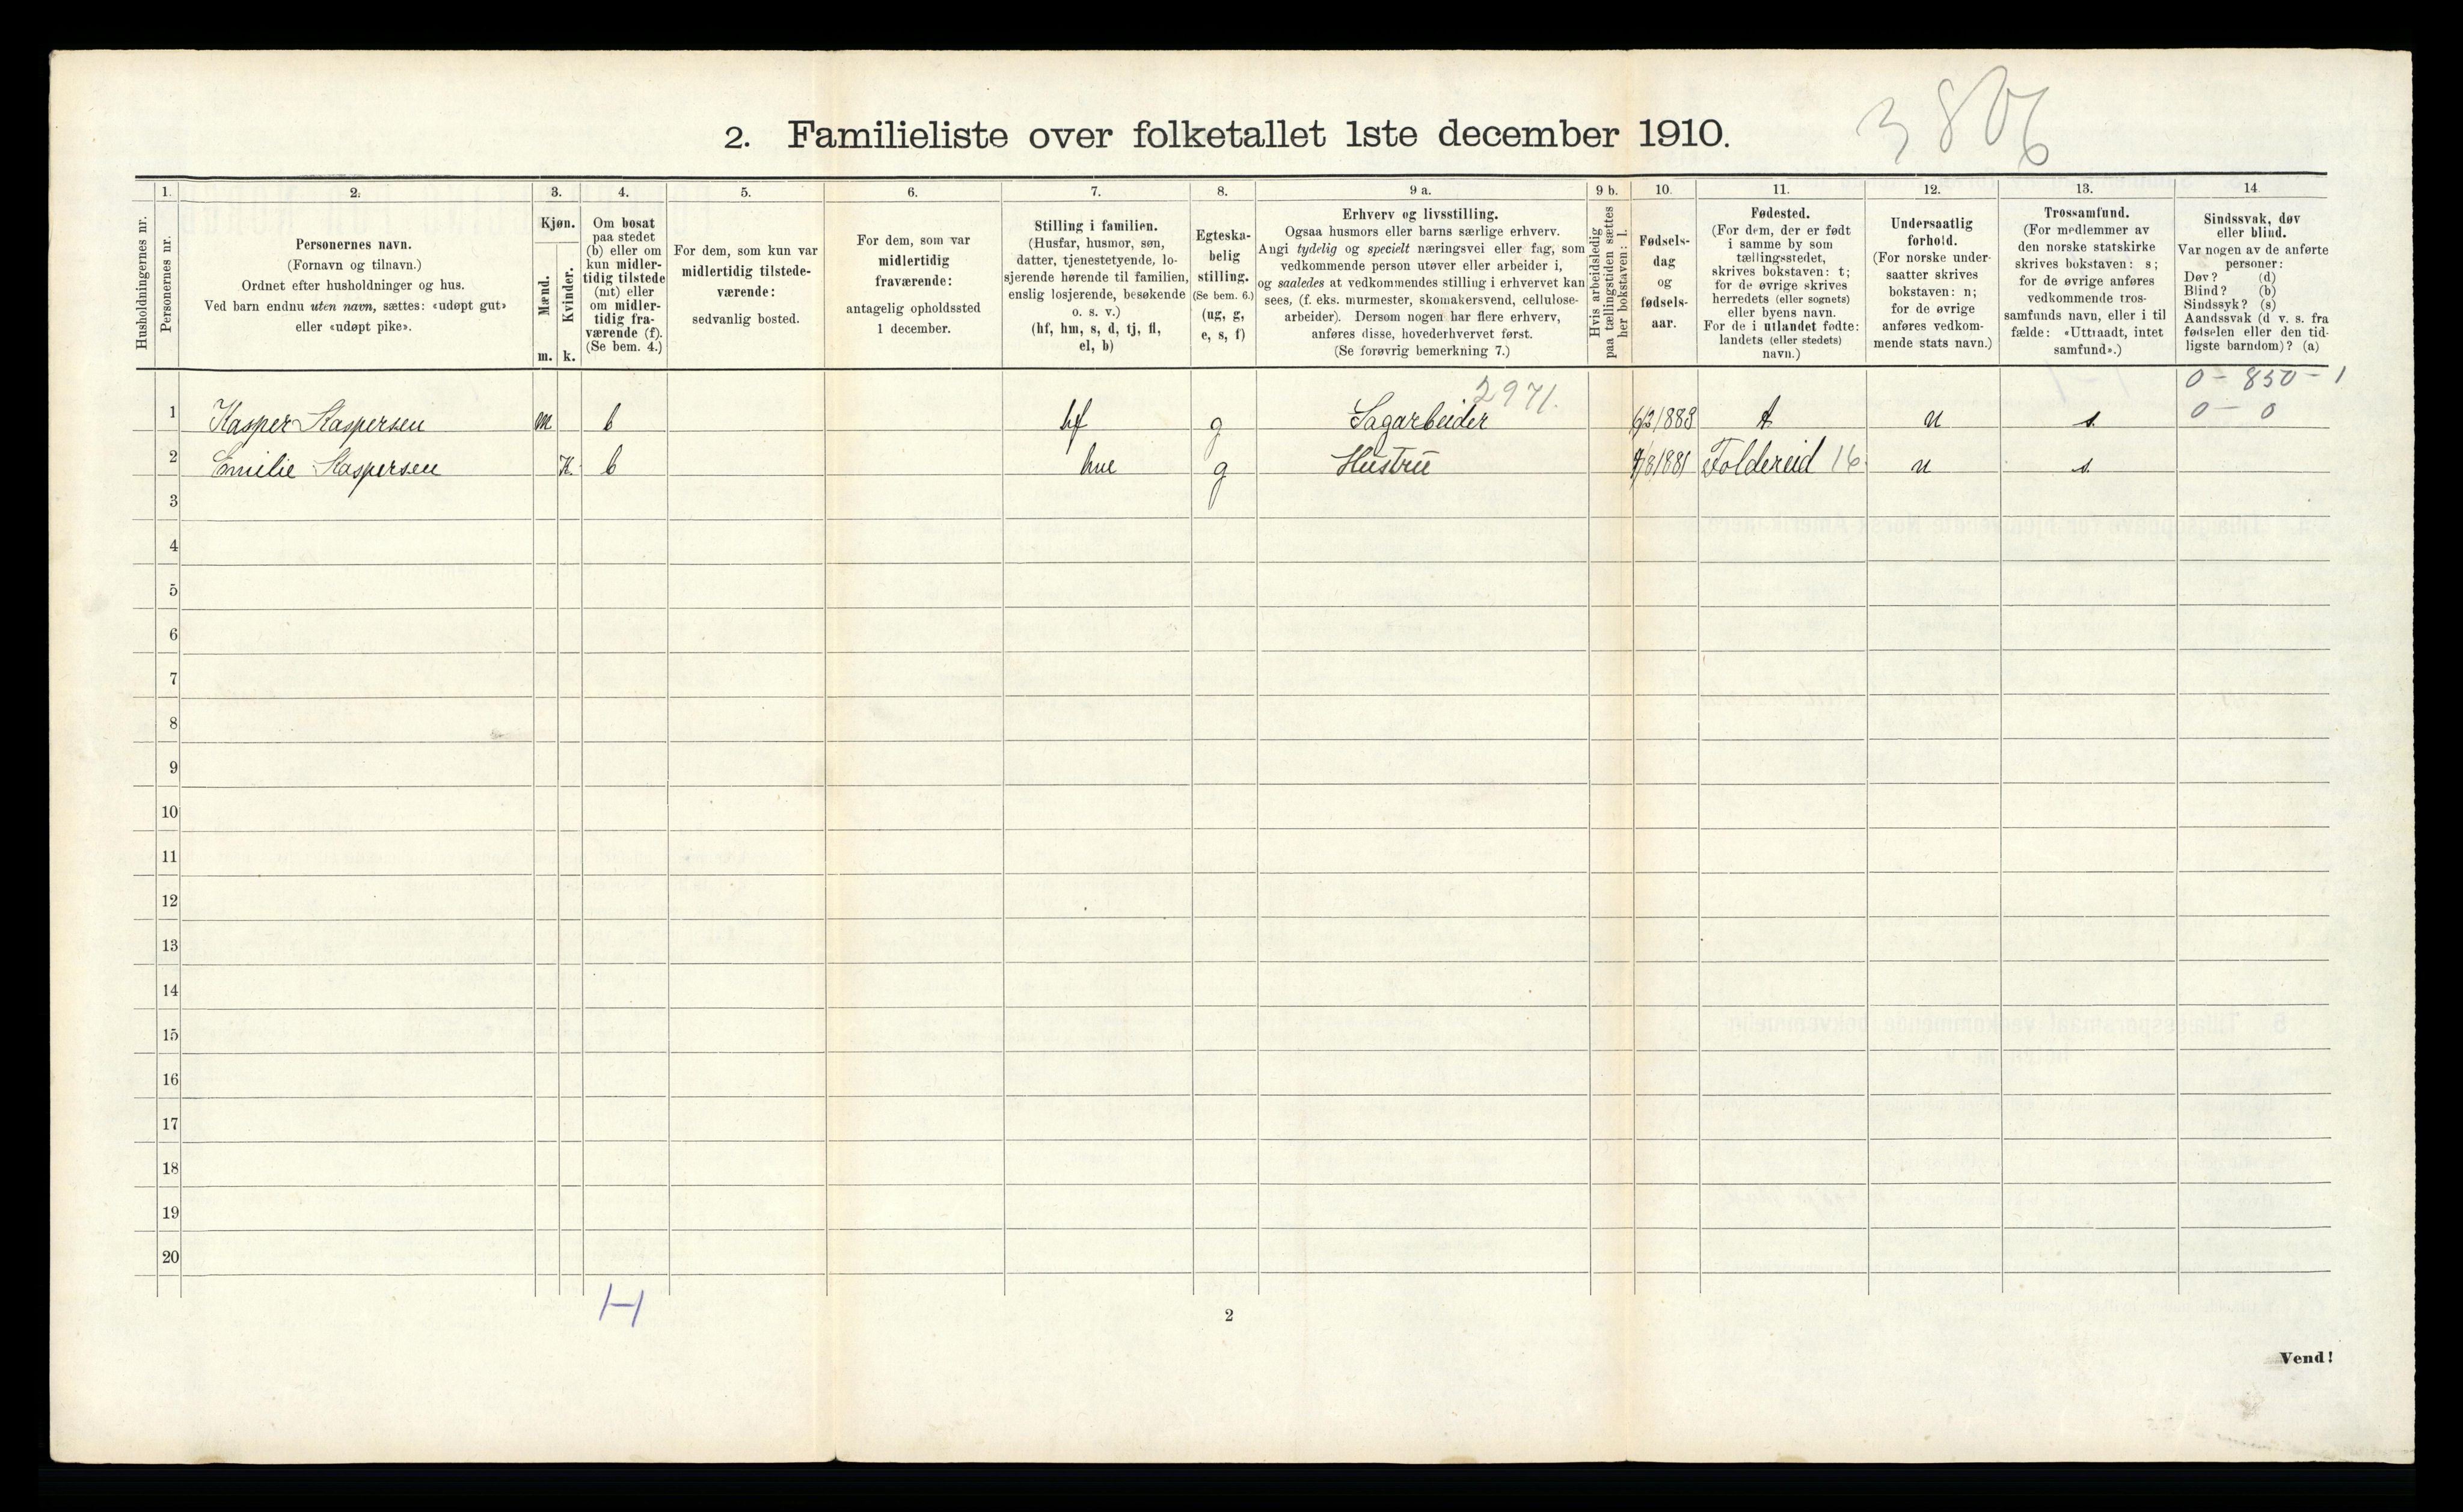 2. Familieliste over folketallet 1ste december 1910.
3806
1. 2. 3. 4. 5. 6. 7. 8. 9 a. 9 b. 10. 11. 12. 13. 14
Husholdningernes nr.
Personernes nr.
Personernes navn.
(Fornavn og tilnavn.)
Ordnet efter husholdninger og hus.
Ved barn endnu uten navn, sættes: «udøpt gut»
eller «udøpt pike».
Kjøn.
Mænd.
Kvinder.
m. k.
Om bosat
paa stedet
(b) eller om
kun midler-
tidig tilstede
(mt) eller
om midler-
tidig fra-
værende (f).
(Se bem. 4.)
For dem, som kun var
midlertidig tilstede-
værende:
sedvanlig bosted.
For dem, som var
midlertidig
fraværende:
antagelig opholdssted
1 december.
Stilling i familien.
(Husfar, husmor, søn,
datter, tjenestetyende, lo-
sjerende hørende til familien,
enslig losjerende, besøkende
o. s. v.)
(hf, hm, s, d, tj, fl,
el, b)
Egteska-
belig
stilling.
(Se bem. 6.)
(ug, g,
e, s, f)
Erhverv og livsstilling.
Ogsaa husmors eller barns særlige erhverv.
Angi tydelig og specielt næringsvei eller fag, som
vedkommende person utøver eller arbeider i,
og saaledes at vedkommendes stilling i erhvervet kan
sees, (f. eks. murmester, skomakersvend, cellulose-
arbeider). Dersom nogen har flere erhverv,
anføres disse, hovederhvervet først.
(Se forøvrig bemerkning 7.)
Hvis arbeidsledig
paa tællingstiden sættes
her bokstaven: l.
Fødsels-
dag
og
fødsels-
aar.
Fødested.
(For dem, der er født
i samme by som
tællingsstedet,
skrives bokstaven: t;
for de øvrige skrives
herredets (eller sognets)
eller byens navn.
For de i utlandet fødte:
landets (eller stedets)
navn.)
Undersaatlig
forhold.
(For norske under-
saatter skrives
bokstaven: n;
for de øvrige
anføres vedkom-
mende stats navn.)
Trossamfund.
(For medlemmer av
den norske statskirke
skrives bokstaven: s;
for de øvrige anføres
vedkommende tros-
samfunds navn, eller i til
fælde: «Uttraadt, intet
samfund».)
Sindssvak, døv
eller blind.
Var nogen av de anførte
personer:
Døv? (d)
Blind? (b)
Sindssyk? (s)
Aandssvak (d v. s. fra
fødselen eller den tid-
ligste barndom)? (a)
2971. 0 - 850 - 1
0 - 0
1 Kasper Kaspersen m b hf g Sagarbeider 6/2 1883 t n s.
2 Emilie Kaspersen K. b hue g Hustru /8 1881 Foldereid 16 n s.
3
4
5
6
7
8
9
10
11
12
13
14
15
16
17
18
19
20
H
2
Vend!